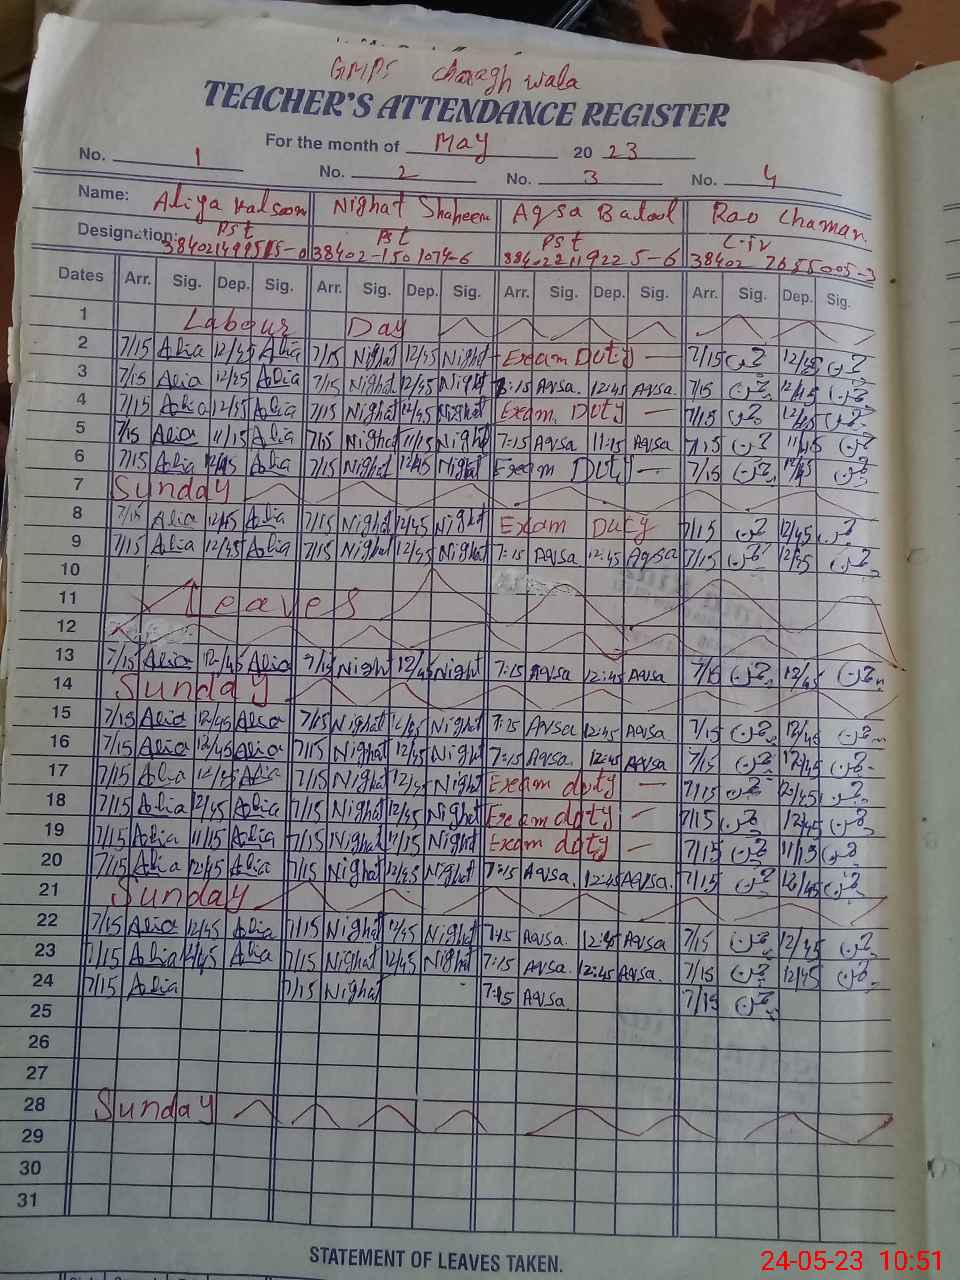 GMPS charagh wala
TEACHER'S ATTENDANCE REGISTER
For the month of May 2023
No. 1 No. 2 No. 3 No. 4
Name: Aliya Kalsoom Nighat Shaheen Aqsa Batool Rao Chaman
Designation: Pst Pst Pst C-iv
38402-1501074-6 38402 7655005-3
Dates Arr. Sig. Dep. Sig. Arr. Sig. Dep. Sig. Arr. Sig. Dep. Sig. Arr. Sig. Dep. Sig.
1 Labour Day
2 7/15 Alia 12/45 Alia 7/15 Nighat 12/45 Nighat Exam Duty — 7/15 12/45
3 7/15 Alia 12/45 Alia 7/15 Nighat 12/45 Nighat 7:15 Aqsa. 12:45 Aqsa. 7/15 12/45
4 7/15 Alia 12/45 Alia 7/15 Nighat 12/45 Nighat Exam Duty — 7/15 12/45
5 7/15 Alia 11/15 Alia 7/15 Nighat 11/15 Nighat 7:15 Aqsa 11:15 Aqsa 7/15 11/15
6 7/15 Alia 12/45 Alia 7/15 Nighat 12/45 Nighat Exam Duty — 7/15 12/45
7 Sunday
8 7/15 Alia 12/45 Alia 7/15 Nighat 12/45 Nighat Exam Duty 7/15 12/45
9 7/15 Alia 12/45 Alia 7/15 Nighat 12/45 Nighat 7:15 Aqsa 12:45 Aqsa 7/15 12/45
10
11 Leaves
12
13 7/15 Alia 12/45 Alia 7/15 Nighat 12/45 Nighat 7:15 Aqsa 12:45 Aqsa 7/15 12/45
14 Sunday
15 7/15 Alia 12/45 Alia 7/15 Nighat 12/45 Nighat 7:15 Aqsa 12:45 Aqsa. 7/15 12/45
16 7/15 Alia 12/45 Alia 7/15 Nighat 12/45 Nighat 7:15 Aqsa. 12:45 Aqsa 7/15 12/45
17 7/15 Alia 12/45 Alia 7/15 Nighat 12/45 Nighat Exam duty — 7/15 12/45
18 7/15 Alia 12/45 Alia 7/15 Nighat 12/45 Nighat Exam duty — 7/15 12/45
19 7/15 Alia 11/15 Alia 7/15 Nighat 11/15 Nighat Exam duty — 7/15 11/15
20 7/15 Alia 12/45 Alia 7/15 Nighat 12/45 Nighat 7:15 Aqsa. 12:45 Aqsa. 7/15 12/45
21 Sunday
22 7/15 Alia 12/45 Alia 7/15 Nighat 12/45 Nighat 7:15 Aqsa. 12:45 Aqsa 7/15 12/45
23 7/15 Alia 12/45 Alia 7/15 Nighat 12/45 Nighat 7:15 Aqsa. 12:45 Aqsa. 7/15 12/45
24 7/15 Alia 7/15 Nighat 7:15 Aqsa. 7/15
25
26
27
28 Sunday
29
30
31
STATEMENT OF LEAVES TAKEN.
24-05-23 10:51